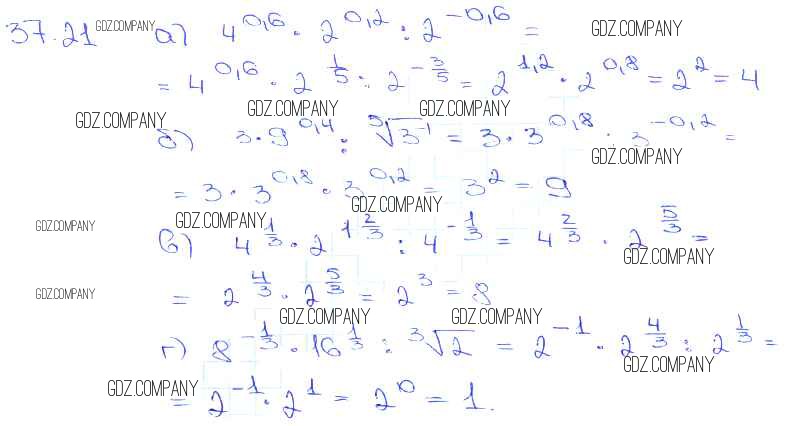 37.21 GDZ.COMPANY а) 4^0,6 · 2^0,2 : 2^-0,6 = GDZ.COMPANY
= 4^0,6 · 2^(1/5) : 2^(-3/5) = 2^1,2 · 2^0,8 = 2^2 = 4
GDZ.COMPANY GDZ.COMPANY GDZ.COMPANY
б) 3 · 9^0,4 : ⁵√(3^-1) = 3 · 3^0,8 : 3^-0,2 =
GDZ.COMPANY
= 3 · 3^0,8 · 3^0,2 = 3^2 = 9
GDZ.COMPANY
GDZ.COMPANY GDZ.COMPANY
в) 4^(1/3) · 2^(1 2/3) : 4^(-1/3) = 4^(2/3) · 2^(5/3) =
GDZ.COMPANY
GDZ.COMPANY = 2^(4/3) · 2^(5/3) = 2^3 = 8
GDZ.COMPANY GDZ.COMPANY
г) 8^(-1/3) · 16^(1/3) : ³√2 = 2^-1 · 2^(4/3) : 2^(1/3) =
GDZ.COMPANY
GDZ.COMPANY = 2^-1 · 2^1 = 2^0 = 1.